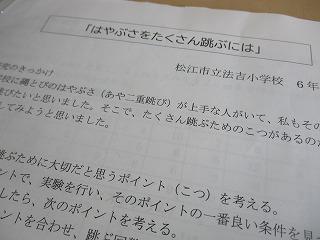 「はやぶさをたくさん跳ぶには」
松江市立法吉小学校 6年
究のきっかけ
校に縄とびのはやぶさ（あや二重跳び）が上手な人がいて、私もその
跳びたいと思いました。そこで、たくさん跳ぶためのこつがあるのか
してみようと思いました。
跳ぶために大切だと思うポイント（こつ）を考える。
ントで、実験を行い、そのポイントの一番良い条件を見
したら、次のポイントを考える。
ントを合わせ、跳ぶ回数